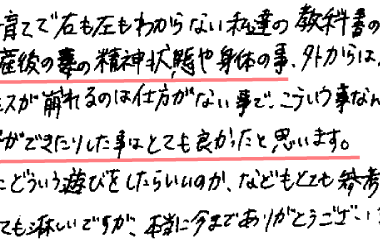 育てで右も左もわからない私達の教科書の
産後の妻の精神状態や身体の事、外からは
スが崩れるのは仕方がない事で、こういう事なん
ができたりした事はとても良かったと思います。
どういう遊びをしたらいいのか、などもとても参考
ても淋しいですが、本当に今までありがとうござい